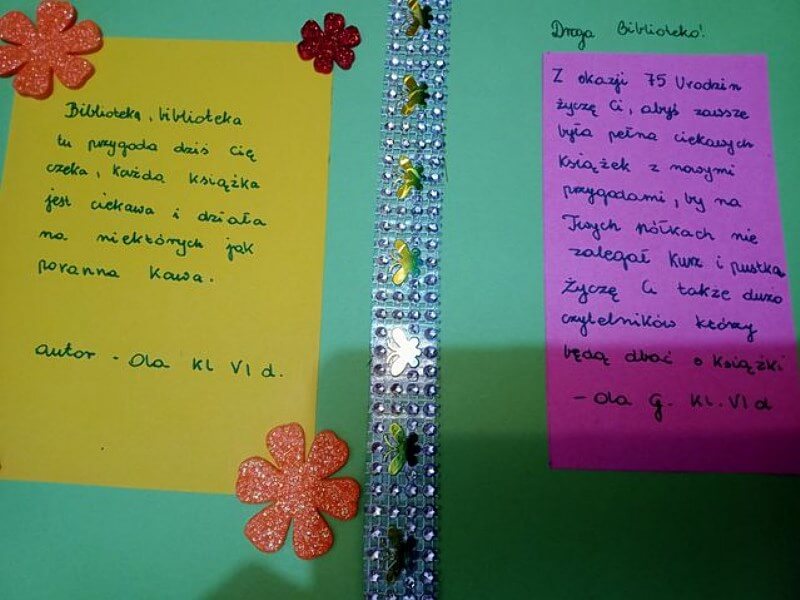 Biblioteka, biblioteka
tu przygoda dziś cię
czeka, każda książka
jest ciekawa i działa
na niektórych jak
poranna kawa.
autor - Ola kl VI d.
Droga Biblioteko!
Z okazji 75 Urodzin
życzę Ci, abyś zawsze
była pełna ciekawych
książek z nowymi
przygodami, by na
Twych półkach nie
zalegał kurz i pustka
Życzę Ci także dużo
czytelników którzy
będą dbać o książki
- Ola G. kl. VI d